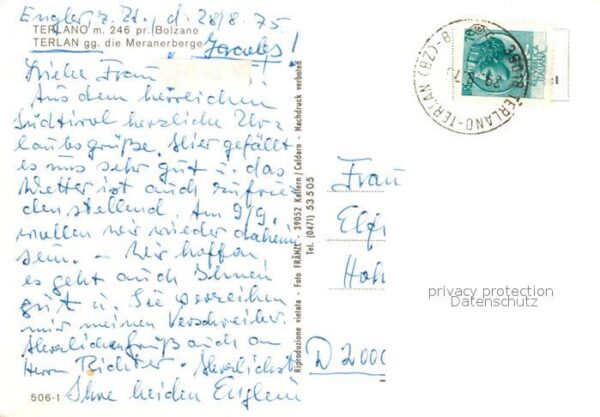 Engler z. Zt., d. 28/8. 75
TERLANO m. 246 pr. Bolzano
TERLAN gg. die Meranerberge
Liebe Frau
Aus dem herrlichen
Südtirol herzliche Ur-
laubsgrüße. Hier gefällt
es uns sehr gut u. das
Wetter ist auch zufrie-
denstellend. Am 9/9.
wollen wir wieder daheim
sein. - Wir hoffen,
es geht auch Ihnen
gut u. Sie verzeihen
mir meinen Verschreiber.
Herzlichen Gruß auch an
Herrn Richter. Herzlichst
Ihre beiden Englein
506-1
Riproduzione vietata - Foto FRÄNZL, 39052 Kaltern / Caldaro - Nachdruck verboten
Tel. (0471) 53 5 05
TERLANO-TERLAN (BZ)
Frau
Elf
Hoh
D 2000
privacy protection
Datenschutz